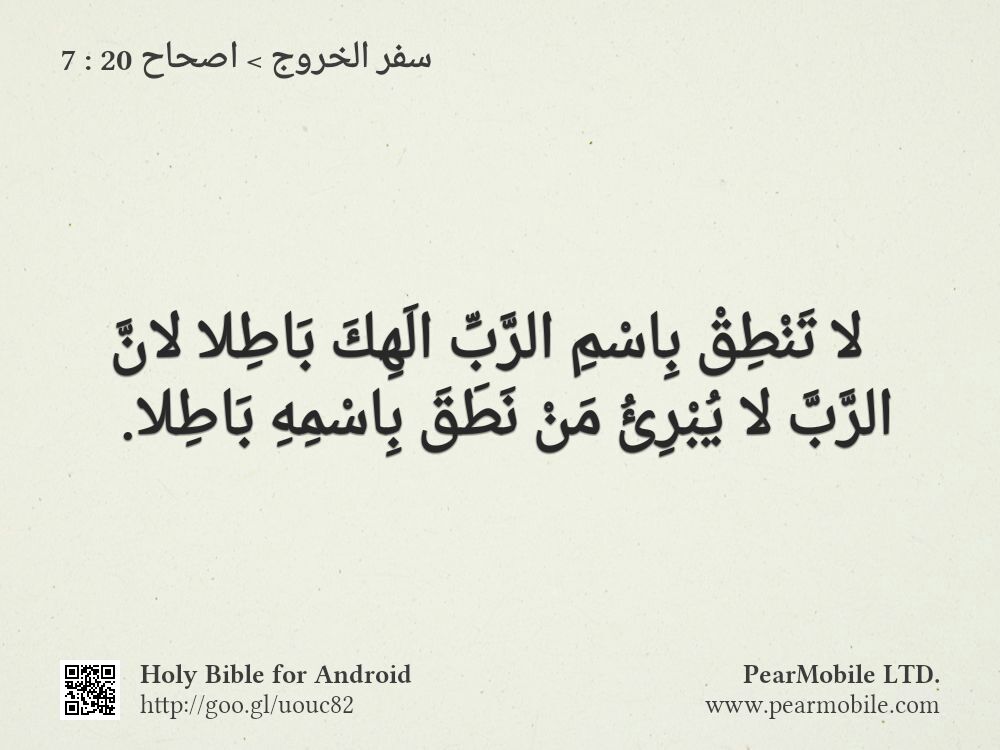 سفر الخروج > اصحاح 20 : 7
لا تَنْطِقْ بِاسْمِ الرَّبِّ الَهِكَ بَاطِلا لانَّ
الرَّبَّ لا يُبْرِئُ مَنْ نَطَقَ بِاسْمِهِ بَاطِلا.
Holy Bible for Android
http://goo.gl/uouc82
PearMobile LTD.
www.pearmobile.com